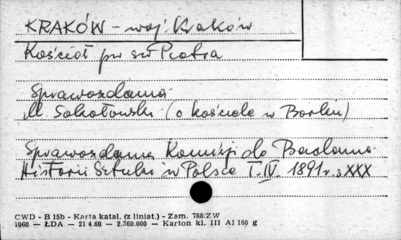 KRAKÓW - woj. Kraków
Kościół pw św Piotra
Sprawozdania
M Sokołowski (o kościele w Borku)
Sprawozdania Komisji do Badania
Historii Sztuki w Polsce T. IV. 1891 r. s XXX
CWD - B 15b - Karta katal. (z liniat.) - Zam. 788/ZW
1960 - ŁDA - 21 4.60 - 2.760.000 - Karton kl. III A1 160 g